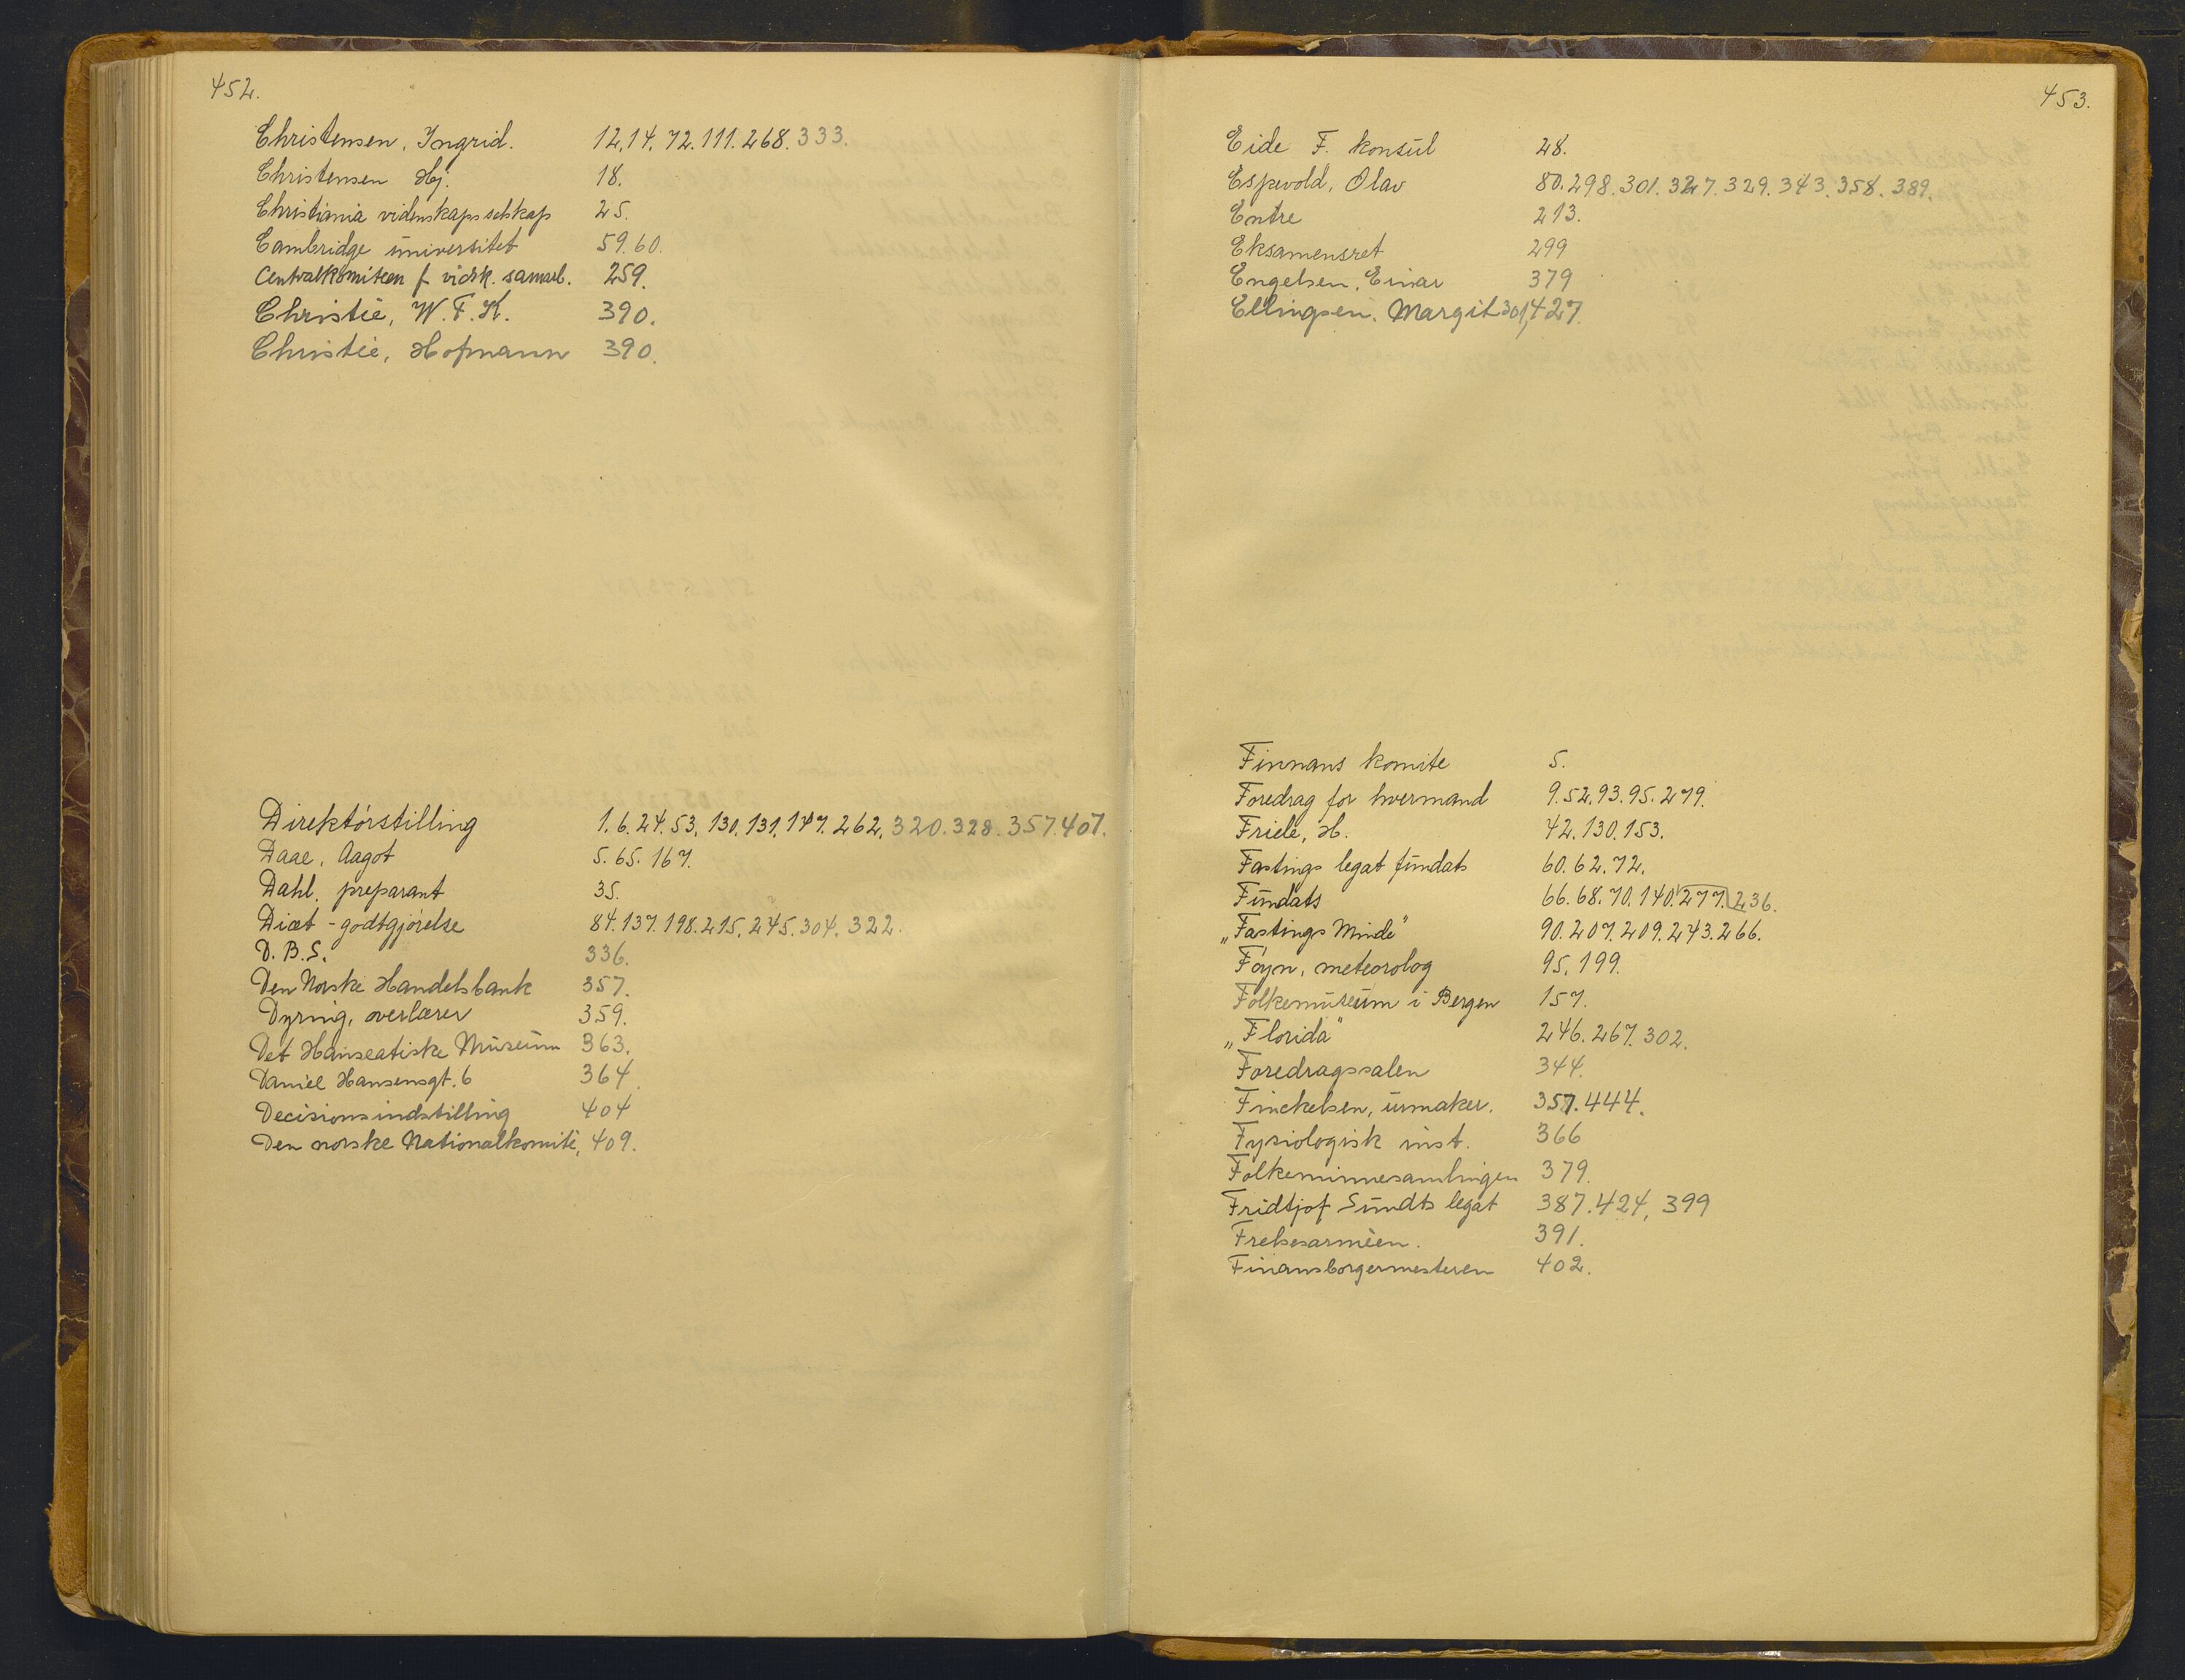 452.
Christensen, Ingrid. 12,14. 72. 111. 268. 333.
Christensen Hj. 18.
Christiania videnskapsselskap 25.
Cambridge universitet 59. 60.
Centralkomiteen f vidsk. samarb. 259.
Christie, W. F. K. 390.
Christie, Hofmann 390.
Direktörstilling 1. 6. 24. 53. 130. 131. 147. 262. 320. 328. 357. 407.
Daae, Aagot 5. 65. 167.
Dahl, preparant 35.
Diæt-godtgjörelse 84. 137. 198. 215. 245. 304. 322.
D. B. S. 336.
Den Norske Handelsbank 357.
Dyring, overlærer 359.
Det Hanseatiske Museum 363.
Daniel Hansensgt. 6 364.
Decisionsindstilling 404
Den norske Nationalkomité, 409.
453.
Eide F. konsul 28.
Espevold, Olav 80. 298. 301. 327. 329. 343. 358. 389.
Entre 213.
Eksamensret 299
Engelsen, Einar 379
Ellingsen, Margit 301, 427.
Finnans komite 5.
Foredrag for hvermand 9. 52. 93. 95. 279.
Friele, H. 42. 130. 153.
Fastings legat fundats 60. 62. 72.
Fundats 66. 68. 70. 140. 277. 236.
„Fastings Minde" 90. 207. 209. 243. 266.
Föyn, meteorolog 95. 199.
Folkemuseum i Bergen 157.
„Florida" 246. 267. 302.
Foredragssalen 344.
Finckelsen, urmaker. 357. 444.
Fysiologisk inst. 366
Folkeminnesamlingen 379.
Fridtjof Sundts legat 387. 424, 399
Frelsesarméen. 391.
Finansborgermesteren 402.